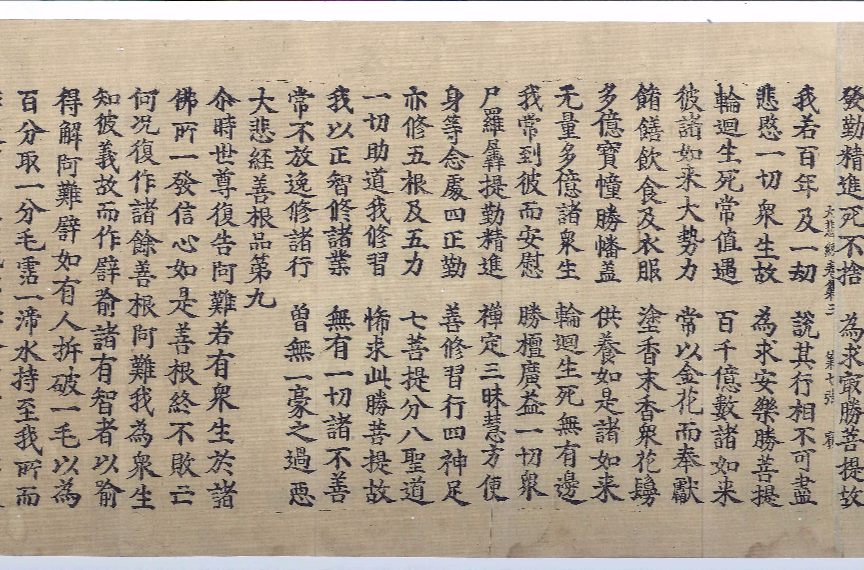 發勤精進死不捨　為求㝡勝菩提故
大悲經卷第三　第七張
我若百年及一劫　說其行相不可盡
悲愍一切衆生故　為求安樂勝菩提
輪迴生死常值遇　百千億數諸如来
彼諸如来大勢力　常以金花而奉獻
餚饍飲食及衣服　塗香末香衆花鬘
多億寶幢勝幡盖　供養如是諸如来
无量多億諸衆生　輪迴生死無有邊
我常到彼而安慰　勝檀廣益一切衆
尸羅羼提勤精進　禪定三昧慧方便
身等念處四正勤　善修習行四神足
亦修五根及五力　七菩提分八聖道
一切助道我修習　悕求此勝菩提故
我以正智修諸業　無有一切諸不善
常不放逸修諸行　曾無一豪之過惡
大悲經善根品第九
尒時世尊復告阿難若有衆生於諸
佛所一發信心如是善根終不敗亡
何況復作諸餘善根阿難我為衆生
知彼義故而作譬喻諸有智者以喻
得解阿難譬如有人拆破一毛以為
百分取一分毛霑一渧水持至我所而